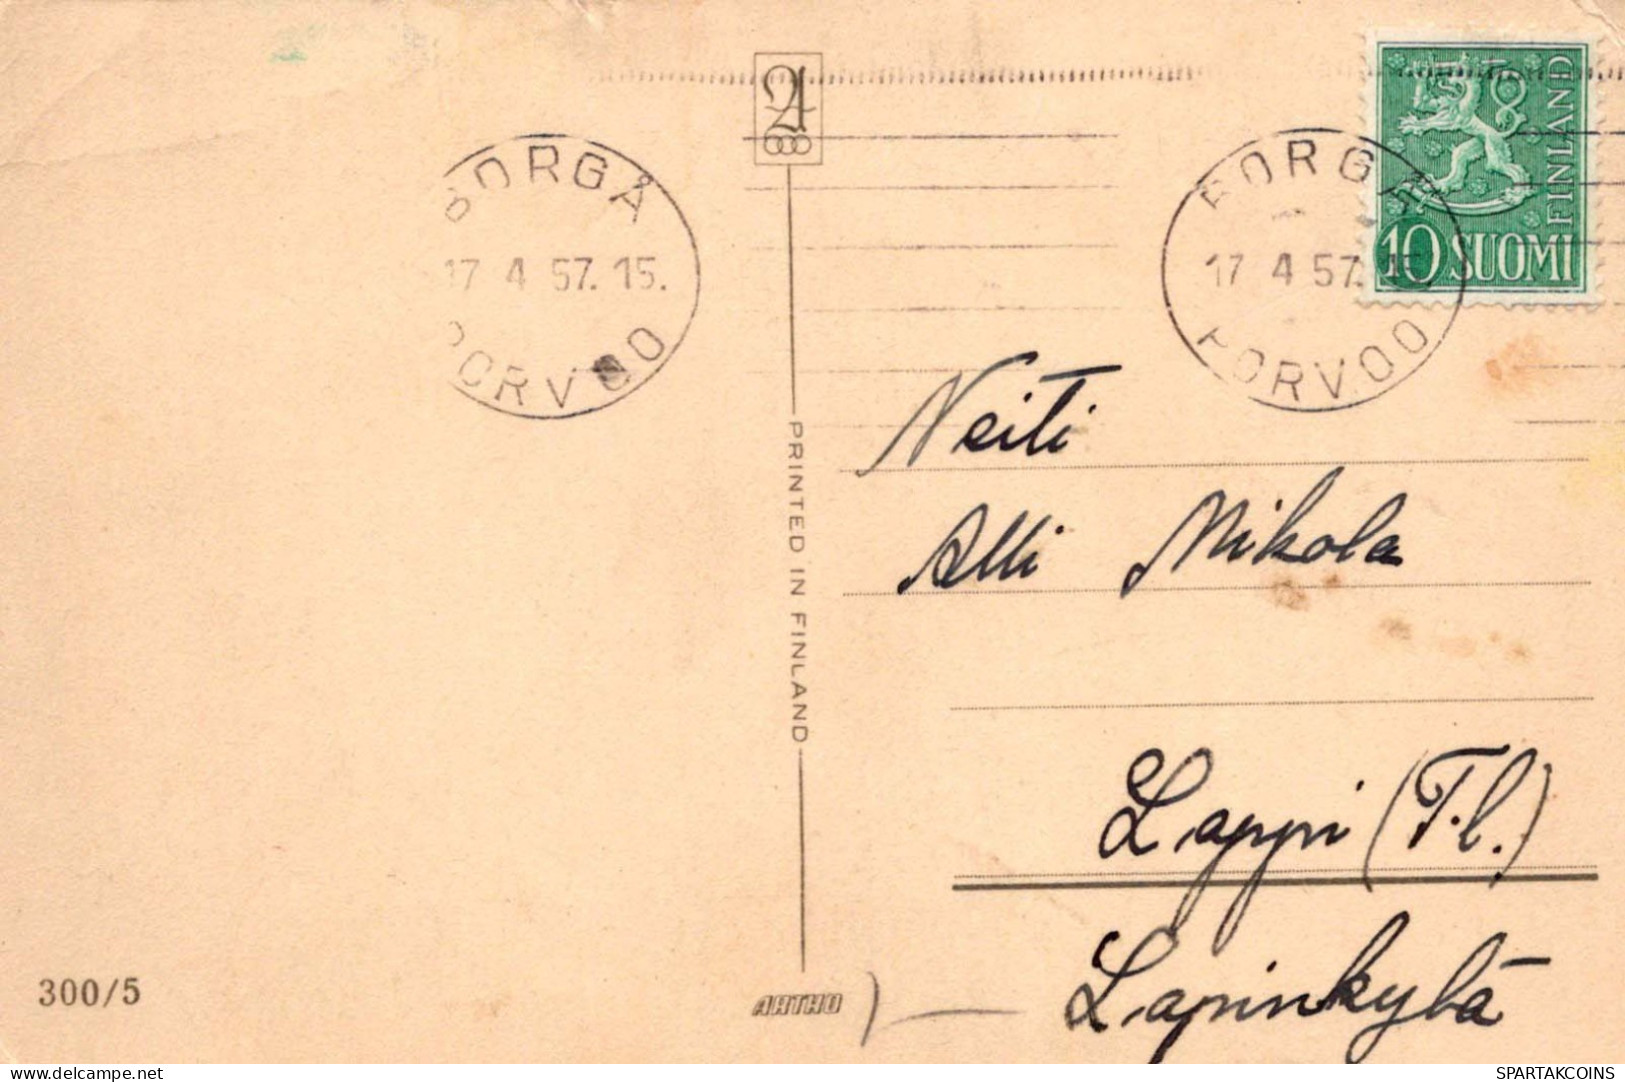 BORGÅ
17 4 57. 15.
PORVOO
BORGÅ
17 4 57.
PORVOO
FINLAND
10 SUOMI
PRINTED IN FINLAND
Neiti
Alli Mikola
Lappi (T.l.)
Lapinkylä
300/5
ARTHO
delcampe.net
SPARTAKCOINS